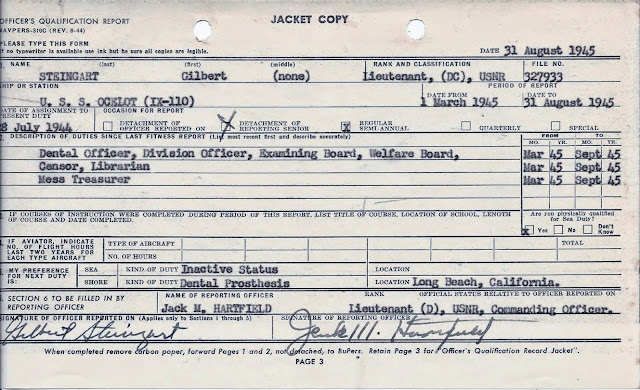 OFFICER'S QUALIFICATION REPORT
NAVPERS-310C (REV. 8-44)
JACKET COPY
PLEASE TYPE THIS FORM
If no typewriter is available use ink but be sure all copies are legible.
DATE 31 August 1945
1. NAME (last) (first) (middle) RANK AND CLASSIFICATION FILE NO.
STEINGART Gilbert (none) Lieutenant, (DC), USNR 327933
SHIP OR STATION PERIOD OF REPORT
U. S. S. OCELOT (IX-110) DATE FROM 1 March 1945 DATE TO 31 August 1945
DATE OF ASSIGNMENT TO PRESENT DUTY OCCASION FOR REPORT
28 July 1944 DETACHMENT OF OFFICER REPORTED ON DETACHMENT OF REPORTING SENIOR X REGULAR SEMI-ANNUAL QUARTERLY SPECIAL
2. DESCRIPTION OF DUTIES SINCE LAST FITNESS REPORT (List most recent first and describe accurately) FROM TO
MO. YR. MO. YR.
Dental Officer, Division Officer, Examining Board, Welfare Board, Mar 45 Sept 45
Censor, Librarian Mar 45 Sept 45
Mess Treasurer Mar 45 Sept 45
3. IF COURSES OF INSTRUCTION WERE COMPLETED DURING PERIOD OF THIS REPORT, LIST TITLE OF COURSE, LOCATION OF SCHOOL, LENGTH OF COURSE AND DATE COMPLETED.
Are you physically qualified for Sea Duty?
X Yes No Don't Know
4. IF AVIATOR, INDICATE NO. OF FLIGHT HOURS LAST TWO YEARS FOR EACH TYPE AIRCRAFT
TYPE OF AIRCRAFT TOTAL
NO. OF HOURS
5. MY PREFERENCE FOR NEXT DUTY IS:
SEA KIND OF DUTY Inactive Status LOCATION
SHORE KIND OF DUTY Dental Prosthesis LOCATION Long Beach, California.
6. SECTION 6 TO BE FILLED IN BY REPORTING OFFICER
NAME OF REPORTING OFFICER RANK OFFICIAL STATUS RELATIVE TO OFFICER REPORTED ON
Jack M. HARTFIELD Lieutenant (D), USNR, Commanding Officer.
SIGNATURE OF OFFICER REPORTED ON (Applies only to Sections 1 through 5) SIGNATURE OF REPORTING OFFICER
Gilbert Steingart Jack M. Hartfield
When completed remove carbon paper, forward Pages 1 and 2, not detached, to BuPers. Retain Page 3 for "Officer's Qualification Record Jacket".
PAGE 3